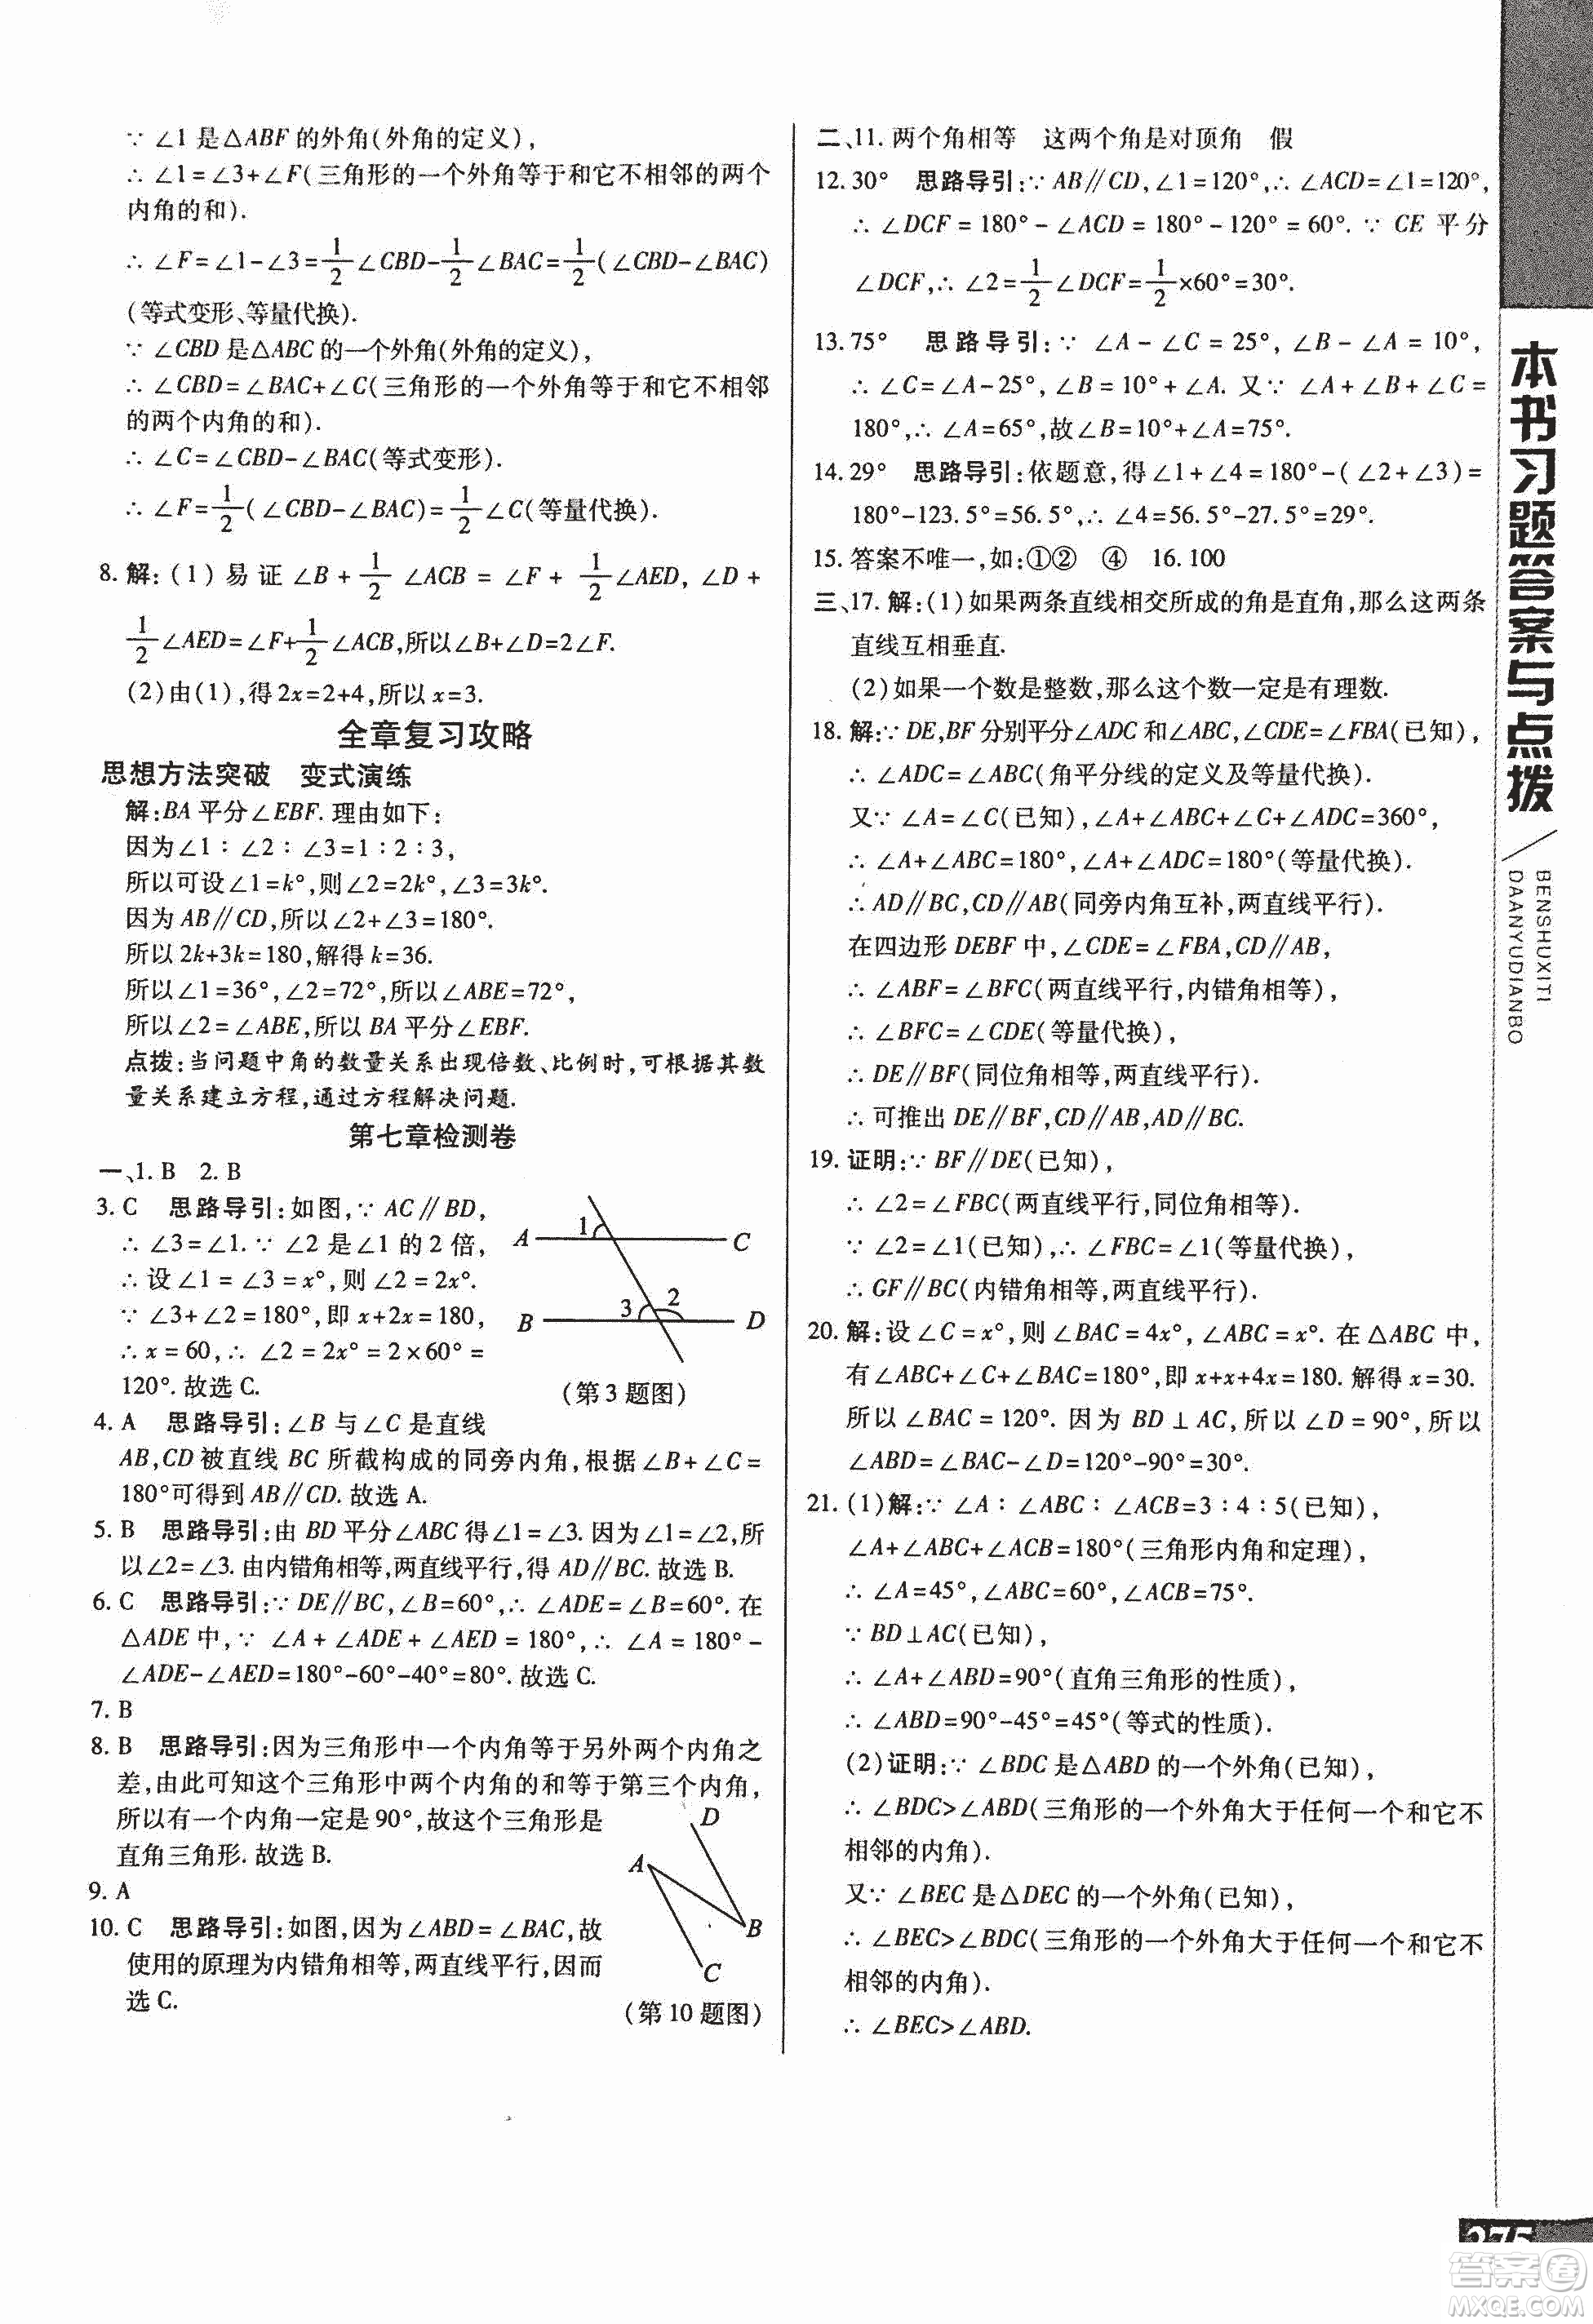 ∵ ∠1 是△ABF 的外角(外角的定义),
∴ ∠1=∠3+∠F(三角形的一个外角等于和它不相邻的两个
内角的和).
∴ ∠F=∠1-∠3=1/2∠CBD-1/2∠BAC=1/2(∠CBD-∠BAC)
(等式变形、等量代换).
∵ ∠CBD 是△ABC 的一个外角(外角的定义),
∴ ∠CBD=∠BAC+∠C(三角形的一个外角等于和它不相邻
的两个内角的和).
∴ ∠C=∠CBD-∠BAC(等式变形).
∴ ∠F=1/2(∠CBD-∠BAC)=1/2∠C(等量代换).
8. 解:(1)易证∠B+1/2∠ACB=∠F+1/2∠AED,∠D+
1/2∠AED=∠F+1/2∠ACB,所以∠B+∠D=2∠F.
(2)由(1),得2x=2+4,所以x=3.
全章复习攻略
思想方法突破 变式演练
解:BA 平分∠EBF. 理由如下:
因为∠1∶∠2∶∠3=1∶2∶3,
所以可设∠1=k°,则∠2=2k°,∠3=3k°.
因为 AB∥CD,所以∠2+∠3=180°.
所以 2k+3k=180,解得 k=36.
所以∠1=36°,∠2=72°,所以∠ABE=72°,
所以∠2=∠ABE,所以 BA 平分∠EBF.
点拨:当问题中角的数量关系出现倍数、比例时,可根据其数
量关系建立方程,通过方程解决问题.
第七章检测卷
一、1. B 2. B
3. C 思路导引:如图,∵ AC∥BD,
∴ ∠3=∠1. ∵ ∠2 是∠1 的 2 倍,
∴ 设∠1=∠3=x°,则∠2=2x°.
∵ ∠3+∠2=180°,即 x+2x=180,
∴ x=60,∴ ∠2=2x°=2×60°=
120°. 故选 C.
1
A
C
3
2
B
D
(第 3 题图)
4. A 思路导引:∠B 与∠C 是直线
AB,CD 被直线 BC 所截构成的同旁内角,根据∠B+∠C=
180°可得到 AB∥CD. 故选 A.
5. B 思路导引:由 BD 平分∠ABC 得∠1=∠3. 因为∠1=∠2,所
以∠2=∠3. 由内错角相等,两直线平行,得 AD∥BC. 故选 B.
6. C 思路导引:∵ DE∥BC,∠B=60°,∴ ∠ADE=∠B=60°. 在
△ADE 中,∵ ∠A+∠ADE+∠AED=180°,∴ ∠A=180°-
∠ADE-∠AED=180°-60°-40°=80°. 故选 C.
7. B
8. B 思路导引:因为三角形中一个内角等于另外两个内角之
差,由此可知这个三角形中两个内角的和等于第三个内角,
所以有一个内角一定是 90°,故这个三角形是
直角三角形. 故选 B.
9. A
10. C 思路导引:如图,因为∠ABD=∠BAC,故
使用的原理为内错角相等,两直线平行,因而
选 C.
D
A
B
C
(第 10 题图)
二、11. 两个角相等 这两个角是对顶角 假
12. 30° 思路导引:∵ AB∥CD,∠1=120°,∴ ∠ACD=∠1=120°,
∴ ∠DCF=180°-∠ACD=180°-120°=60°. ∵ CE 平分
∠DCF,∴ ∠2=1/2∠DCF=1/2×60°=30°.
13. 75° 思路导引:∵ ∠A-∠C=25°,∠B-∠A=10°,
∴ ∠C=∠A-25°,∠B=10°+∠A. 又∵ ∠A+∠B+∠C=
180°,∴ ∠A=65°,故∠B=10°+∠A=75°.
14. 29° 思路导引:依题意,得∠1+∠4=180°-(∠2+∠3)=
180°-123.5°=56.5°,∴ ∠4=56.5°-27.5°=29°.
15. 答案不唯一,如:①② ④ 16. 100
三、17. 解:(1)如果两条直线相交所成的角是直角,那么这两条
直线互相垂直.
(2)如果一个数是整数,那么这个数一定是有理数.
18. 解:∵ DE,BF 分别平分∠ADC 和∠ABC,∠CDE=∠FBA(已知),
∴ ∠ADC=∠ABC(角平分线的定义及等量代换).
又∵ ∠A=∠C(已知),∠A+∠ABC+∠C+∠ADC=360°,
∴ ∠A+∠ABC=180°,∠A+∠ADC=180°(等量代换).
∴ AD∥BC,CD∥AB(同旁内角互补,两直线平行).
在四边形 DEBF 中,∠CDE=∠FBA,CD∥AB,
∴ ∠ABF=∠BFC(两直线平行,内错角相等),
∴ ∠BFC=∠CDE(等量代换),
∴ DE∥BF(同位角相等,两直线平行).
∴ 可推出 DE∥BF,CD∥AB,AD∥BC.
19. 证明:∵ BF∥DE(已知),
∴ ∠2=∠FBC(两直线平行,同位角相等).
∵ ∠2=∠1(已知),∴ ∠FBC=∠1(等量代换),
∴ GF∥BC(内错角相等,两直线平行).
20. 解:设∠C=x°,则∠BAC=4x°,∠ABC=x°. 在△ABC 中,
有∠ABC+∠C+∠BAC=180°,即 x+x+4x=180. 解得 x=30.
所以∠BAC=120°. 因为 BD⊥AC,所以∠D=90°,所以
∠ABD=∠BAC-∠D=120°-90°=30°.
21. (1)解:∵ ∠A∶∠ABC∶∠ACB=3∶4∶5(已知),
∠A+∠ABC+∠ACB=180°(三角形内角和定理),
∴ ∠A=45°,∠ABC=60°,∠ACB=75°.
∵ BD⊥AC(已知),
∴ ∠A+∠ABD=90°(直角三角形的性质),
∴ ∠ABD=90°-45°=45°(等式的性质).
(2)证明:∵ ∠BDC 是△ABD 的一个外角(已知),
∴ ∠BDC>∠ABD(三角形的一个外角大于任何一个和它不
相邻的内角).
又∵ ∠BEC 是△DEC 的一个外角(已知),
∴ ∠BEC>∠BDC(三角形的一个外角大于任何一个和它不
相邻的内角).
∴ ∠BEC>∠ABD.
本书习题答案与点拨
BENSHUXITI
DAANYUDIANBO
275
答案圈
MXQE.COM